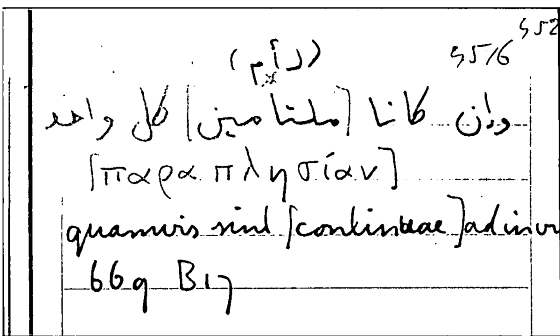 (لأم)
وإن كانا [ملتامين] كل واحد
[παραπλησίαν]
quamvis sint [continuae] ad inv
669 B17